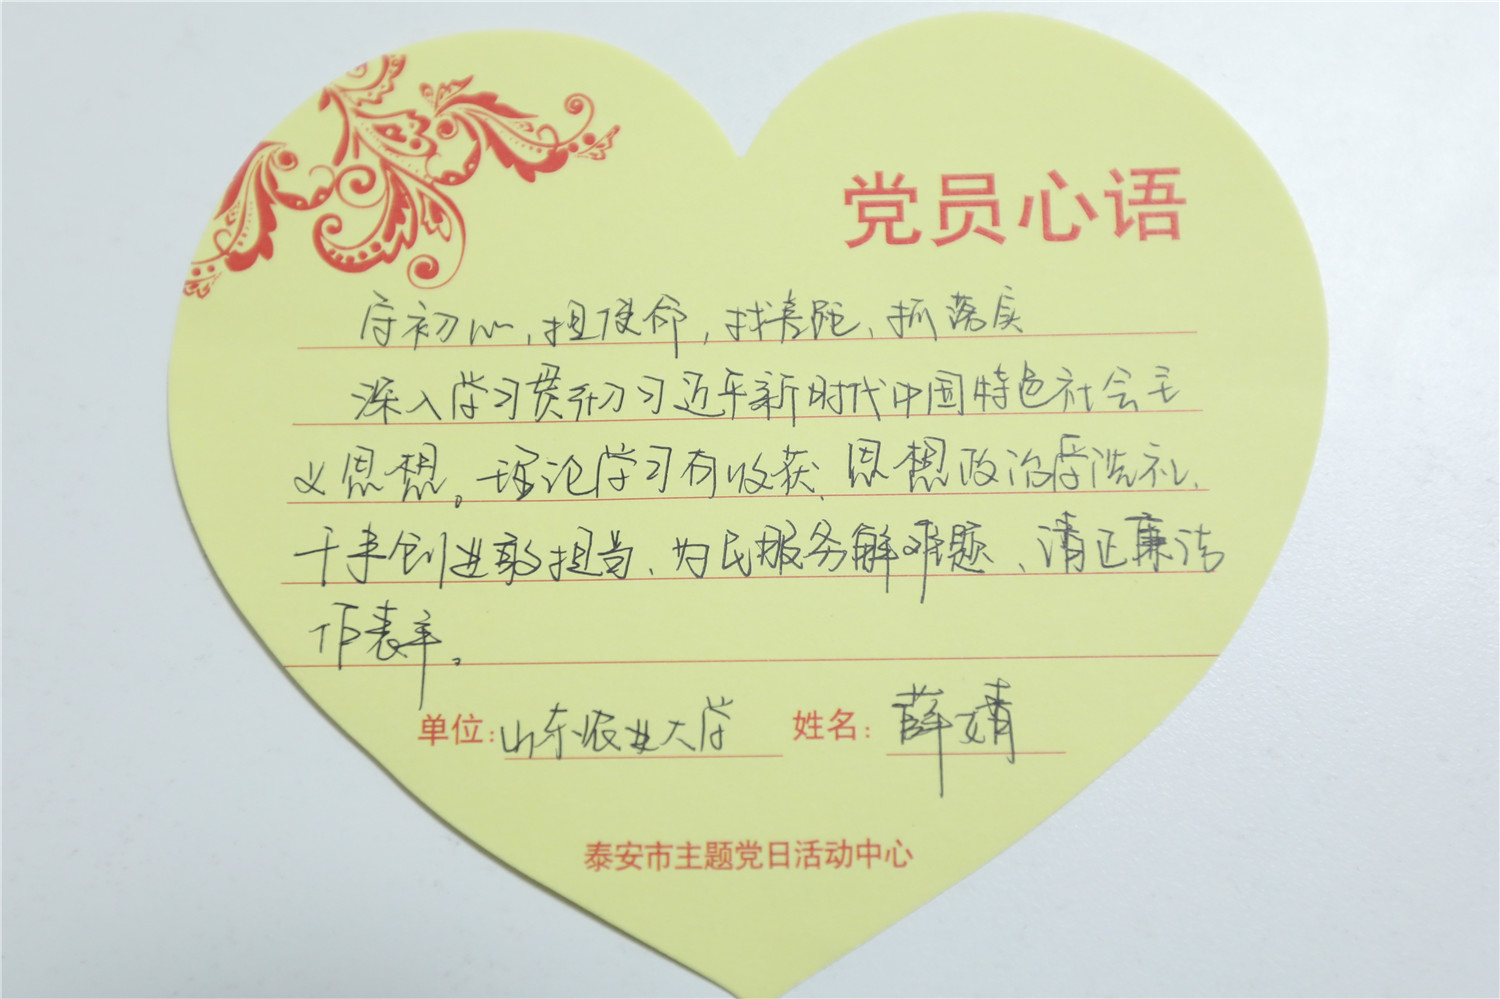 党员心语
守初心,担使命,找差距、抓落实
深入学习贯彻习近平新时代中国特色社会主
义思想。理论学习有收获、思想政治受洗礼、
干事创业敢担当、为民服务解难题、清正廉洁
作表率。
单位:山东农业大学 姓名:薛婧
泰安市主题党日活动中心